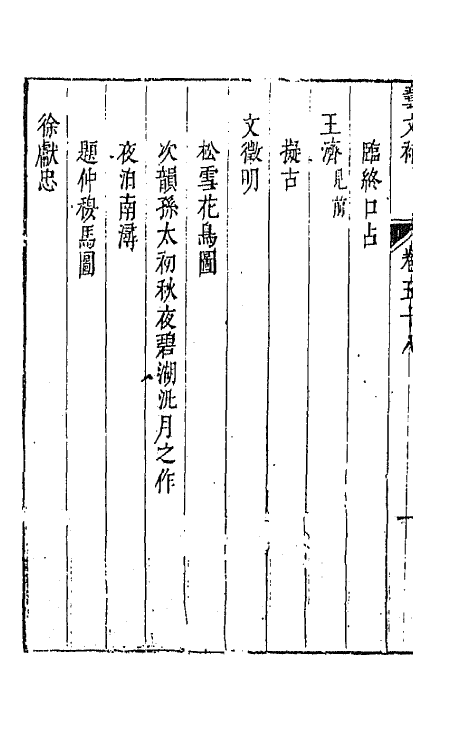 臨終口占
王濟見前
擬古
文徵明
松雪花鳥圖
次韻孫太初秋夜碧湖泛月之作
夜泊南潯
題仲穆馬圖
徐獻忠